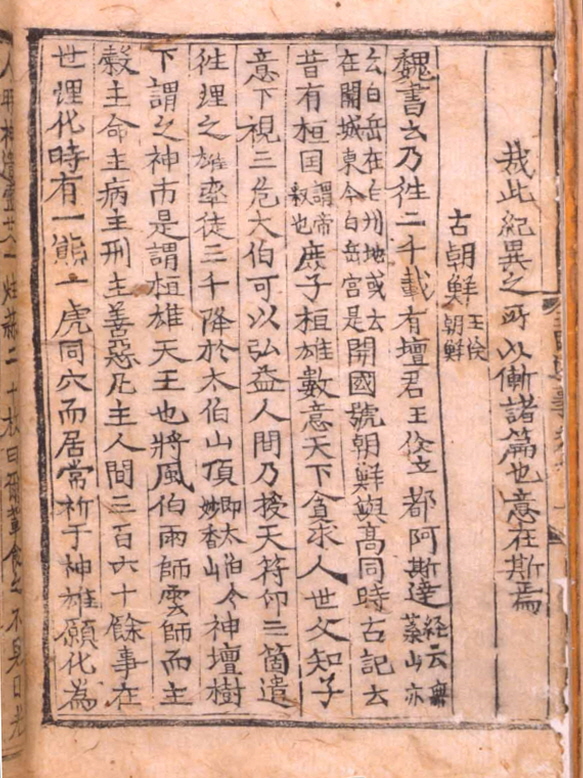 哉此紀異之所以慚諸篇也意在斯焉
古朝鮮王倹朝鮮
魏書云乃徃二千載有壇君王倹立都阿斯達經云無葉山亦
云白岳在白州地或云在開城東今白岳宮是開國號朝鮮與高同時古記云
昔有桓囯謂帝釈也庶子桓雄數意天下貪求人世父知子
意下視三危大伯可以弘益人間乃授天符印三箇遣
徃理之雄率徒三千降於太伯山頂即太伯今妙香山神壇樹
下謂之神市是謂桓雄天王也將風伯雨師雲師而主
糓主命主病主刑主善惡凢主人間三百六十餘事在
世理化時有一熊一虎同穴而居常祈于神雄願化為